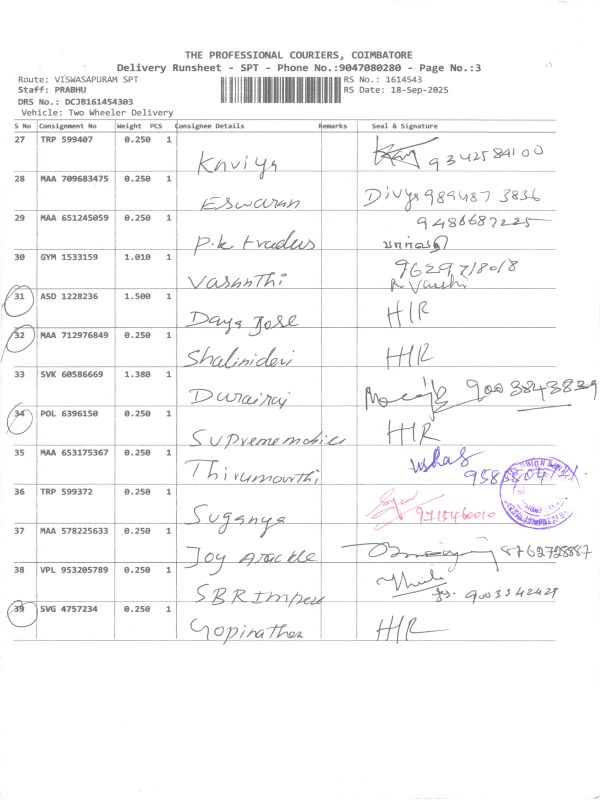 THE PROFESSIONAL COURIERS, COIMBATORE
Delivery Runsheet - SPT - Phone No.:9047080280 - Page No.:3
Route: VISWASAPURAM SPT
RS No.: 1614543
Staff: PRABHU
RS Date: 18-Sep-2025
DRS No.: DCJB161454303
Vehicle: Two Wheeler Delivery
S No Consignment No Weight PCS Consignee Details Remarks Seal & Signature
27 TRP 599407 0.250 1
Kaviya 9342584100
28 MAA 709683475 0.250 1
Eswaran Divya 989487 3836
29 MAA 651245059 0.250 1
9486687225
P.k traders
30 GYM 1533159 1.010 1
9629718018
Vasanthi
31 ASD 1228236 1.500 1
Daya Jose H/R
32 MAA 712976849 0.250 1
Shalinidevi H/R
33 SVK 60586669 1.380 1
Durairaj 9003843839
34 POL 6396150 0.250 1
Supreme mobiles H/R
35 MAA 653175367 0.250 1
Thirumoorthi
36 TRP 599372 0.250 1
Suganya 9715460010
37 MAA 578225633 0.250 1
Joy 8762728887
38 VPL 953205789 0.250 1
SBR Impex 9003342429
39 SVG 4757234 0.250 1
Gopinathan H/R